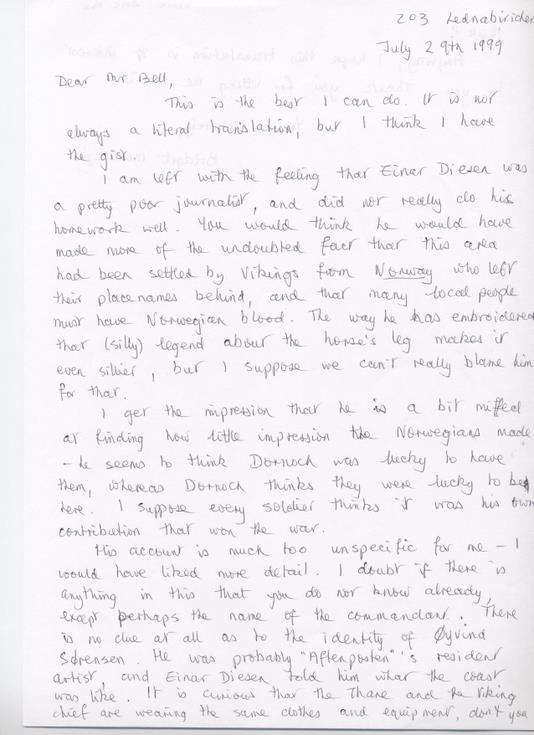 203 Lednabirichen
July 29th 1999
Dear Mr Bell,
This is the best I can do. It is not
always a literal translation, but I think I have
the gist.
I am left with the feeling that Einar Diesen was
a pretty poor journalist, and did not really do his
homework well. You would think he would have
made more of the undoubted fact that this area
had been settled by Vikings from Norway who left
their placenames behind, and that many local people
must have Norwegian blood. The way he has embroidered
that (silly) legend about the horse's leg makes it
even sillier, but I suppose we can't really blame him
for that.
I get the impression that he is a bit miffed
at finding how little impression the Norwegians made
- he seems to think Dornoch was lucky to have
them, whereas Dornoch thinks they were lucky to be
here. I suppose every soldier thinks it was his own
contribution that won the war.
His account is much too unspecific for me - I
would have liked more detail. I doubt if there is
anything in this that you do not know already,
except perhaps the name of the commandant. There
is no clue at all as to the identity of Øyvind
Sørensen. He was probably "Aftenposten"'s resident
artist, and Einar Diesen told him what the coast
was like. It is curious that the Thane and the Viking
chief are wearing the same clothes and equipment, don't you